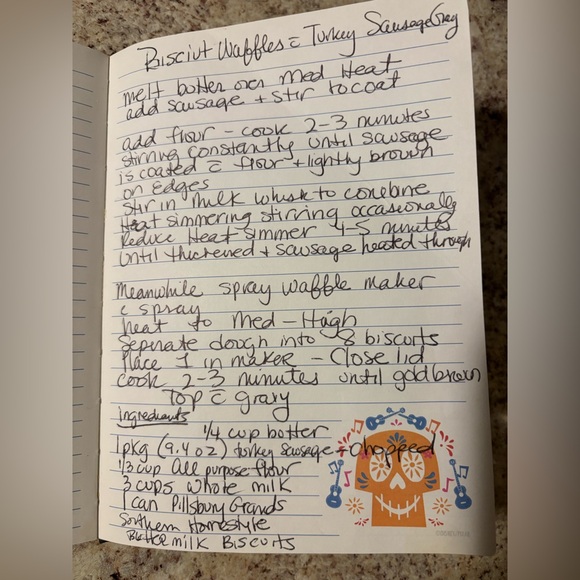 Bisciut Waffles c̄ Turkey Sausage Gravy
melt butter over Med Heat
add sausage + stir to coat
add flour - cook 2-3 minutes
stirring constantly until sausage
is coated c̄ flour + lightly brown
on edges
stir in milk whisk to combine
Heat simmering stirring occasionally
Reduce Heat simmer 4-5 minutes
until thickened + sausage heated through
Meanwhile spray waffle maker
c̄ spray
heat to Med - High
Seperate dough into 8 biscuits
Place 1 in maker - Close lid
cook 2-3 minutes until gold brown
Top c̄ gravy
ingredients
1/4 cup butter
1 pkg (9.4 oz) turkey sausage - chopped
1/3 cup All purpose flour
3 cups whole milk
1 can Pillsbury Grands
Southern Homestyle
Buttermilk Biscuits